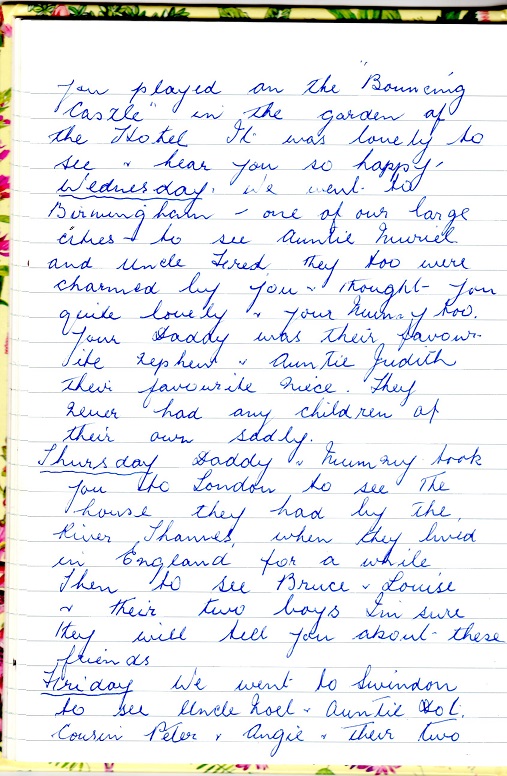 You played on the "Bouncing
Castle" in the garden of
the Hotel It was lovely to
see & hear you so happy.
Wednesday. We went to
Birmingham - one of our large
cities - to see Auntie Muriel
and Uncle Fred they too were
charmed by you & thought you
quite lovely & your Mummy too.
Your Daddy was their favour-
ite nephew & Auntie Judith
their favourite niece. They
never had any children of
their own sadly.
Thursday Daddy & Mummy took
you to London to see the
house they had by the
River Thames, when they lived
in England for a while
Then to see Bruce & Louise
& their two boys I'm sure
they will tell you about these
friends
Friday We went to Swindon
to see Uncle Noel & Auntie Dot.
Cousin Peter & Angie & their two